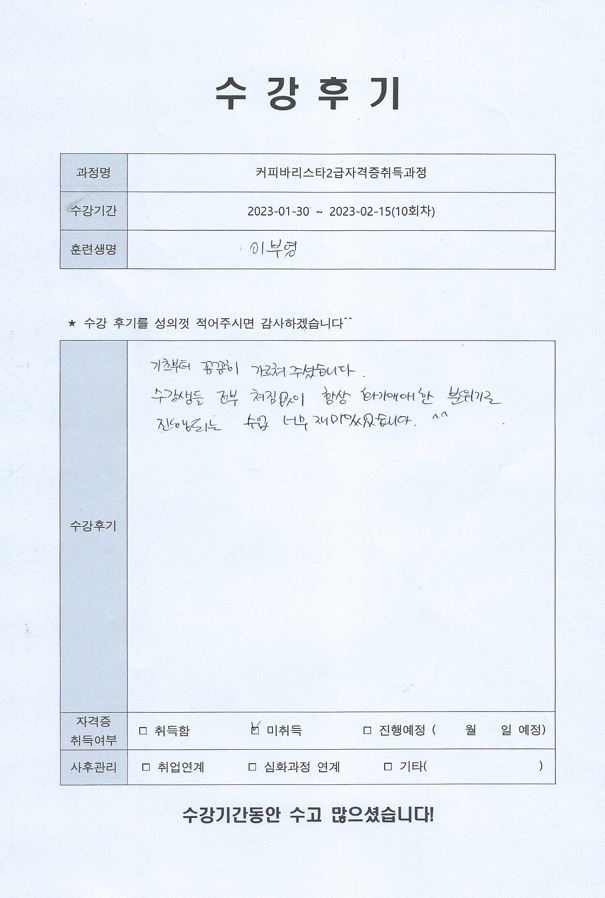 수강후기
과정명 커피바리스타2급자격증취득과정
수강기간 2023-01-30 ~ 2023-02-15(10회차)
훈련생명 이부영
★ 수강 후기를 성의껏 적어주시면 감사하겠습니다^^
기초부터 꼼꼼히 가르쳐 주셨습니다.
수강생들 전부 쳐짐없이 항상 화기애애한 분위기로
진행되는 수업 너무 재미있었습니다. ^^
수강후기
자격증
취득여부 □ 취득함 ☑ 미취득 □ 진행예정 ( 월 일 예정)
사후관리 □ 취업연계 □ 심화과정 연계 □ 기타( )
수강기간동안 수고 많으셨습니다!